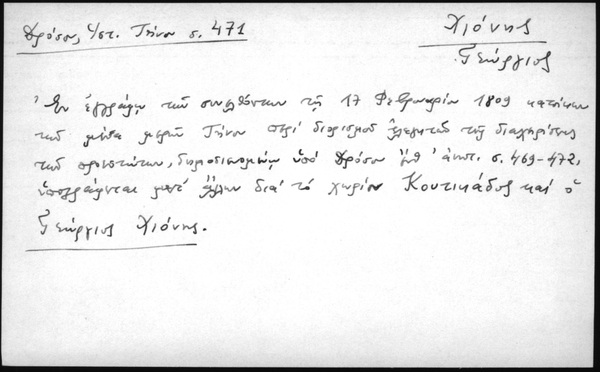 Δρόσου, Ἱστ. Τήνου σ. 471
Χιόνης
Γεώργιος
Ἐν ἐγγράφῳ τῶν συνελθόντων τῇ 17 Φεβρουαρίου 1809 κατοίκων
τῶν μέσα μερῶν Τήνου περὶ διορισμοῦ ἐλεγκτῶν τῆς διαχειρίσεως
τῶν προεστώτων, δημοσιευομένῳ ὑπὸ Δρόσου ἔνθ' ἀνωτ. σ. 469-472,
ὑπογράφεται μετ' ἄλλων διὰ τὸ χωρίον Κουτικάδος καὶ ὁ
Γεώργιος Χιόνης.